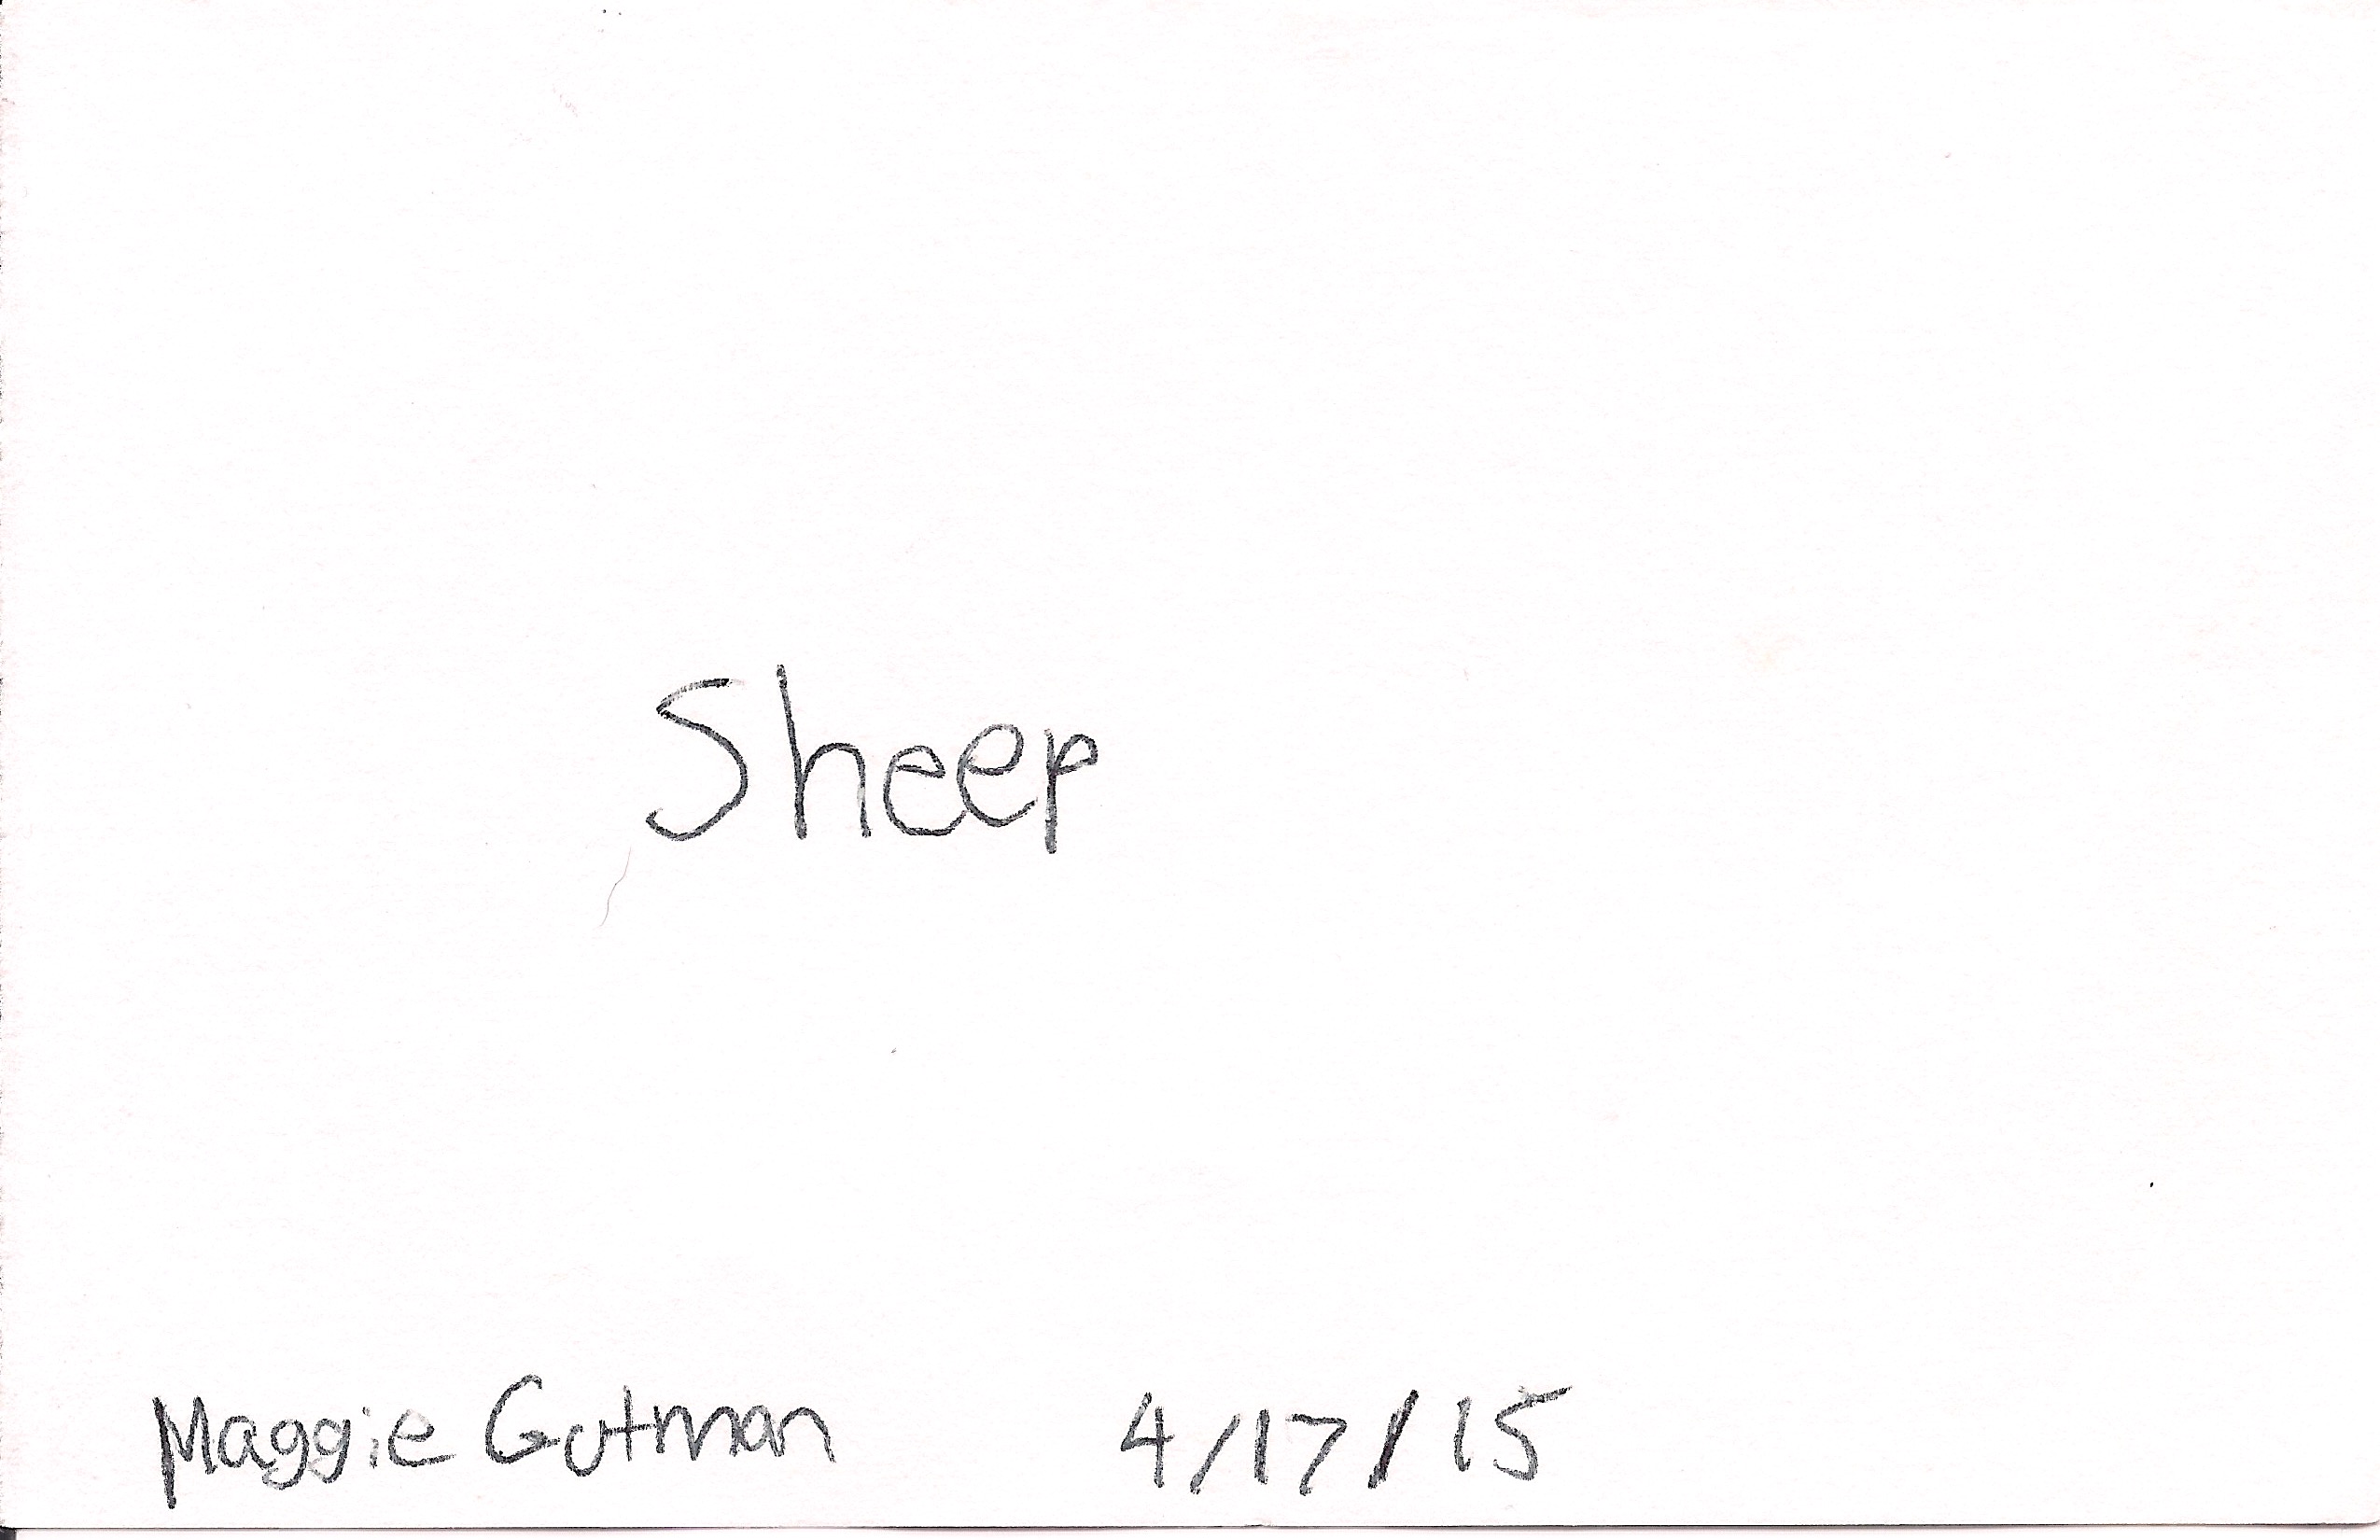 Sheep
Maggie Gutman 4/17/15